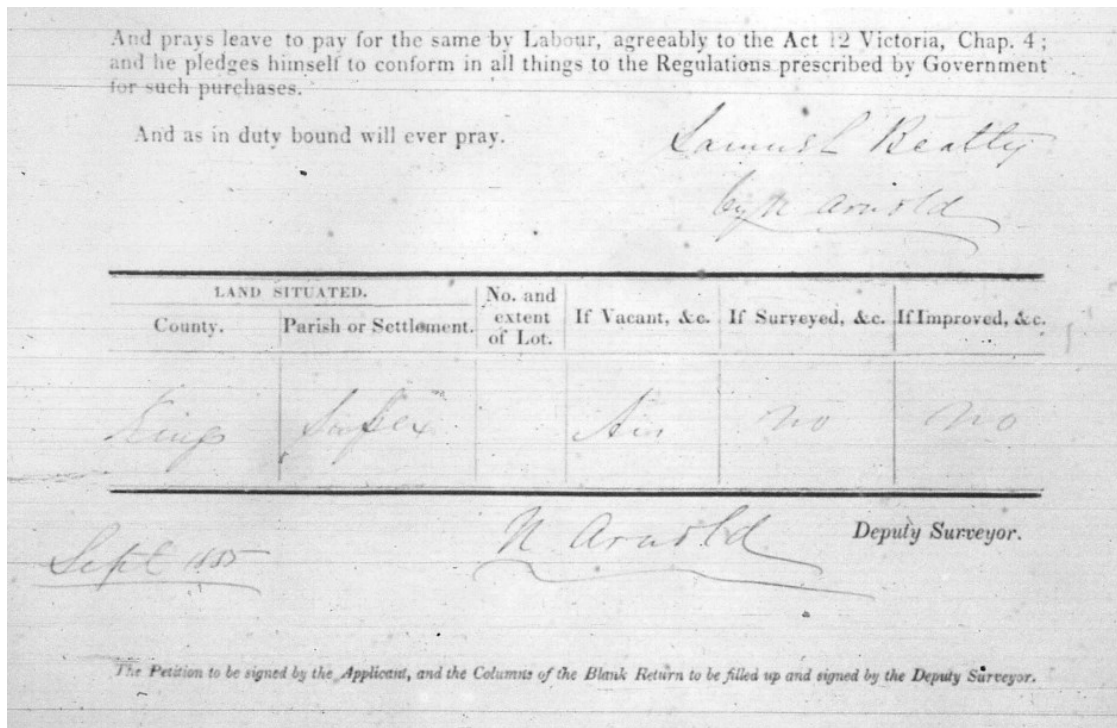 And prays leave to pay for the same by Labour, agreeably to the Act 12 Victoria, Chap. 4 ;
and he pledges himself to conform in all things to the Regulations prescribed by Government
for such purchases.
And as in duty bound will ever pray.
Samuel Beatty
by N Arnold
LAND SITUATED.
County.
Parish or Settlement.
No. and
extent
of Lot.
If Vacant, &c.
If Surveyed, &c.
If Improved, &c.
Kings
Sussex
no
no
N Arnold
Deputy Surveyor.
Sept 1855
The Petition to be signed by the Applicant, and the Columns of the Blank Return to be filled up and signed by the Deputy Surveyor.